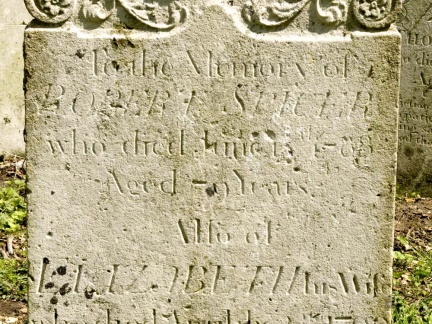 To the Memory of
ROBERT SPICER
who died June
Aged 79 Years.
Alſo of
ELIZABETH his Wife
who died